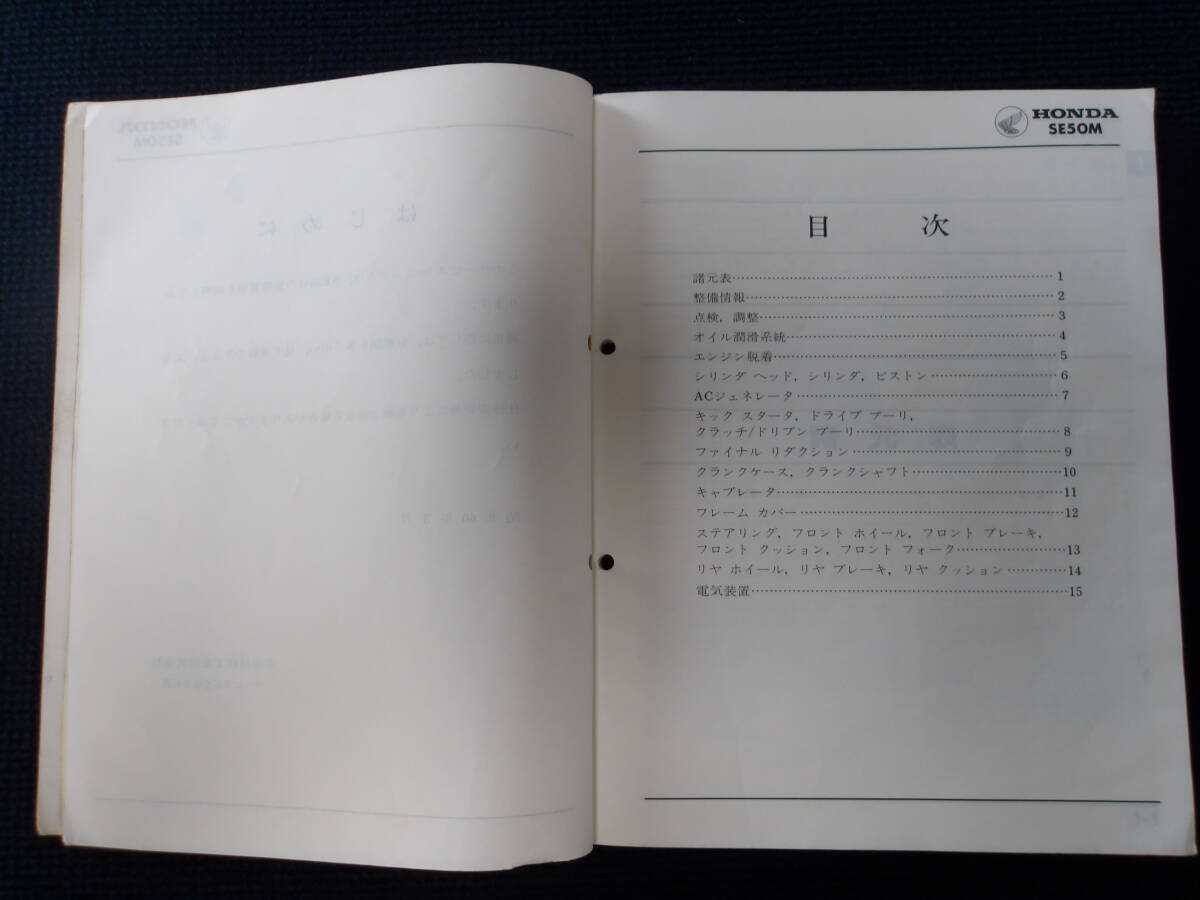 HONDA
SE50M
目 次
諸元表…………………………………………………………1
整備情報………………………………………………………2
点検, 調整……………………………………………………3
オイル潤滑系統………………………………………………4
エンジン脱着…………………………………………………5
シリンダ ヘッド, シリンダ, ピストン……………………6
ACジェネレータ………………………………………………7
キック スタータ, ドライブ プーリ,
クラッチ/ドリブン プーリ…………………………………8
ファイナル リダクション……………………………………9
クランクケース, クランクシャフト………………………10
キャブレータ…………………………………………………11
フレーム カバー………………………………………………12
ステアリング, フロント ホイール, フロント ブレーキ,
フロント クッション, フロント フォーク…………………13
リヤ ホイール, リヤ ブレーキ, リヤ クッション…………14
電気装置………………………………………………………15